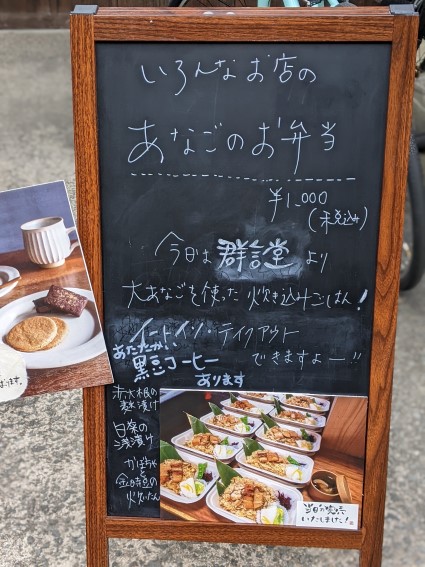 いろんなお店の
あなごのお弁当
¥1,000
(税込)
今日は 群言堂 より
大あなごを使った 炊き込みごはん!
イートイン・テイクアウト
できますよー!!
あたたかい
黒豆コーヒー
あります
赤大根の
麹漬け
白菜の
浅漬け
かぼちゃと
金時豆の
いたしました!